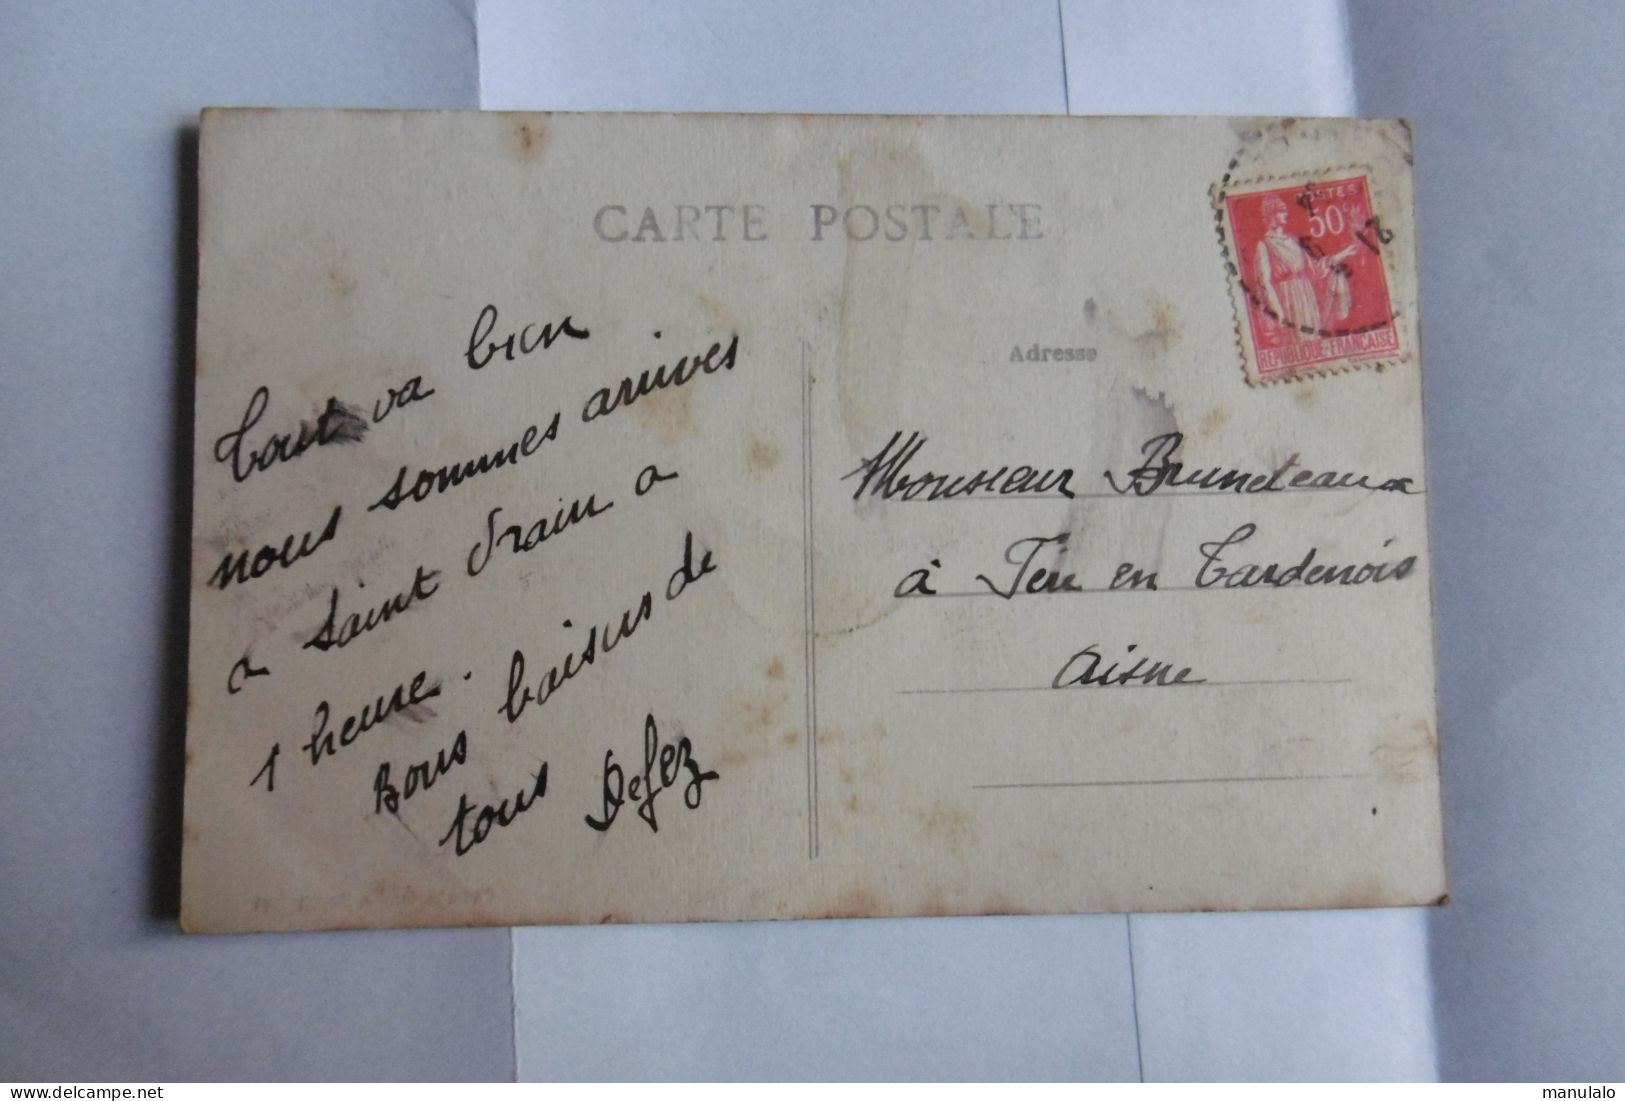 CARTE POSTALE
Tout va bien
nous sommes arrives
a Saint Drain a
1 heure.
Bons baisers de
tous Defez
POSTES
50c
REPUBLIQUE FRANÇAISE
Adresse
Monsieur Bruneteaux
à Fère en Tardenois
Aisne
manulalo
delcampe.net